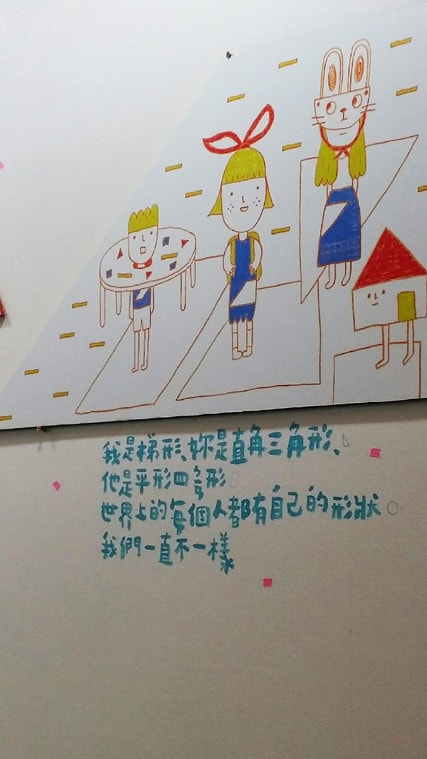 我是梯形、妳是直角三角形、
他是平形四邊形
世界上的每個人都有自己的形狀。
我們一直不一樣